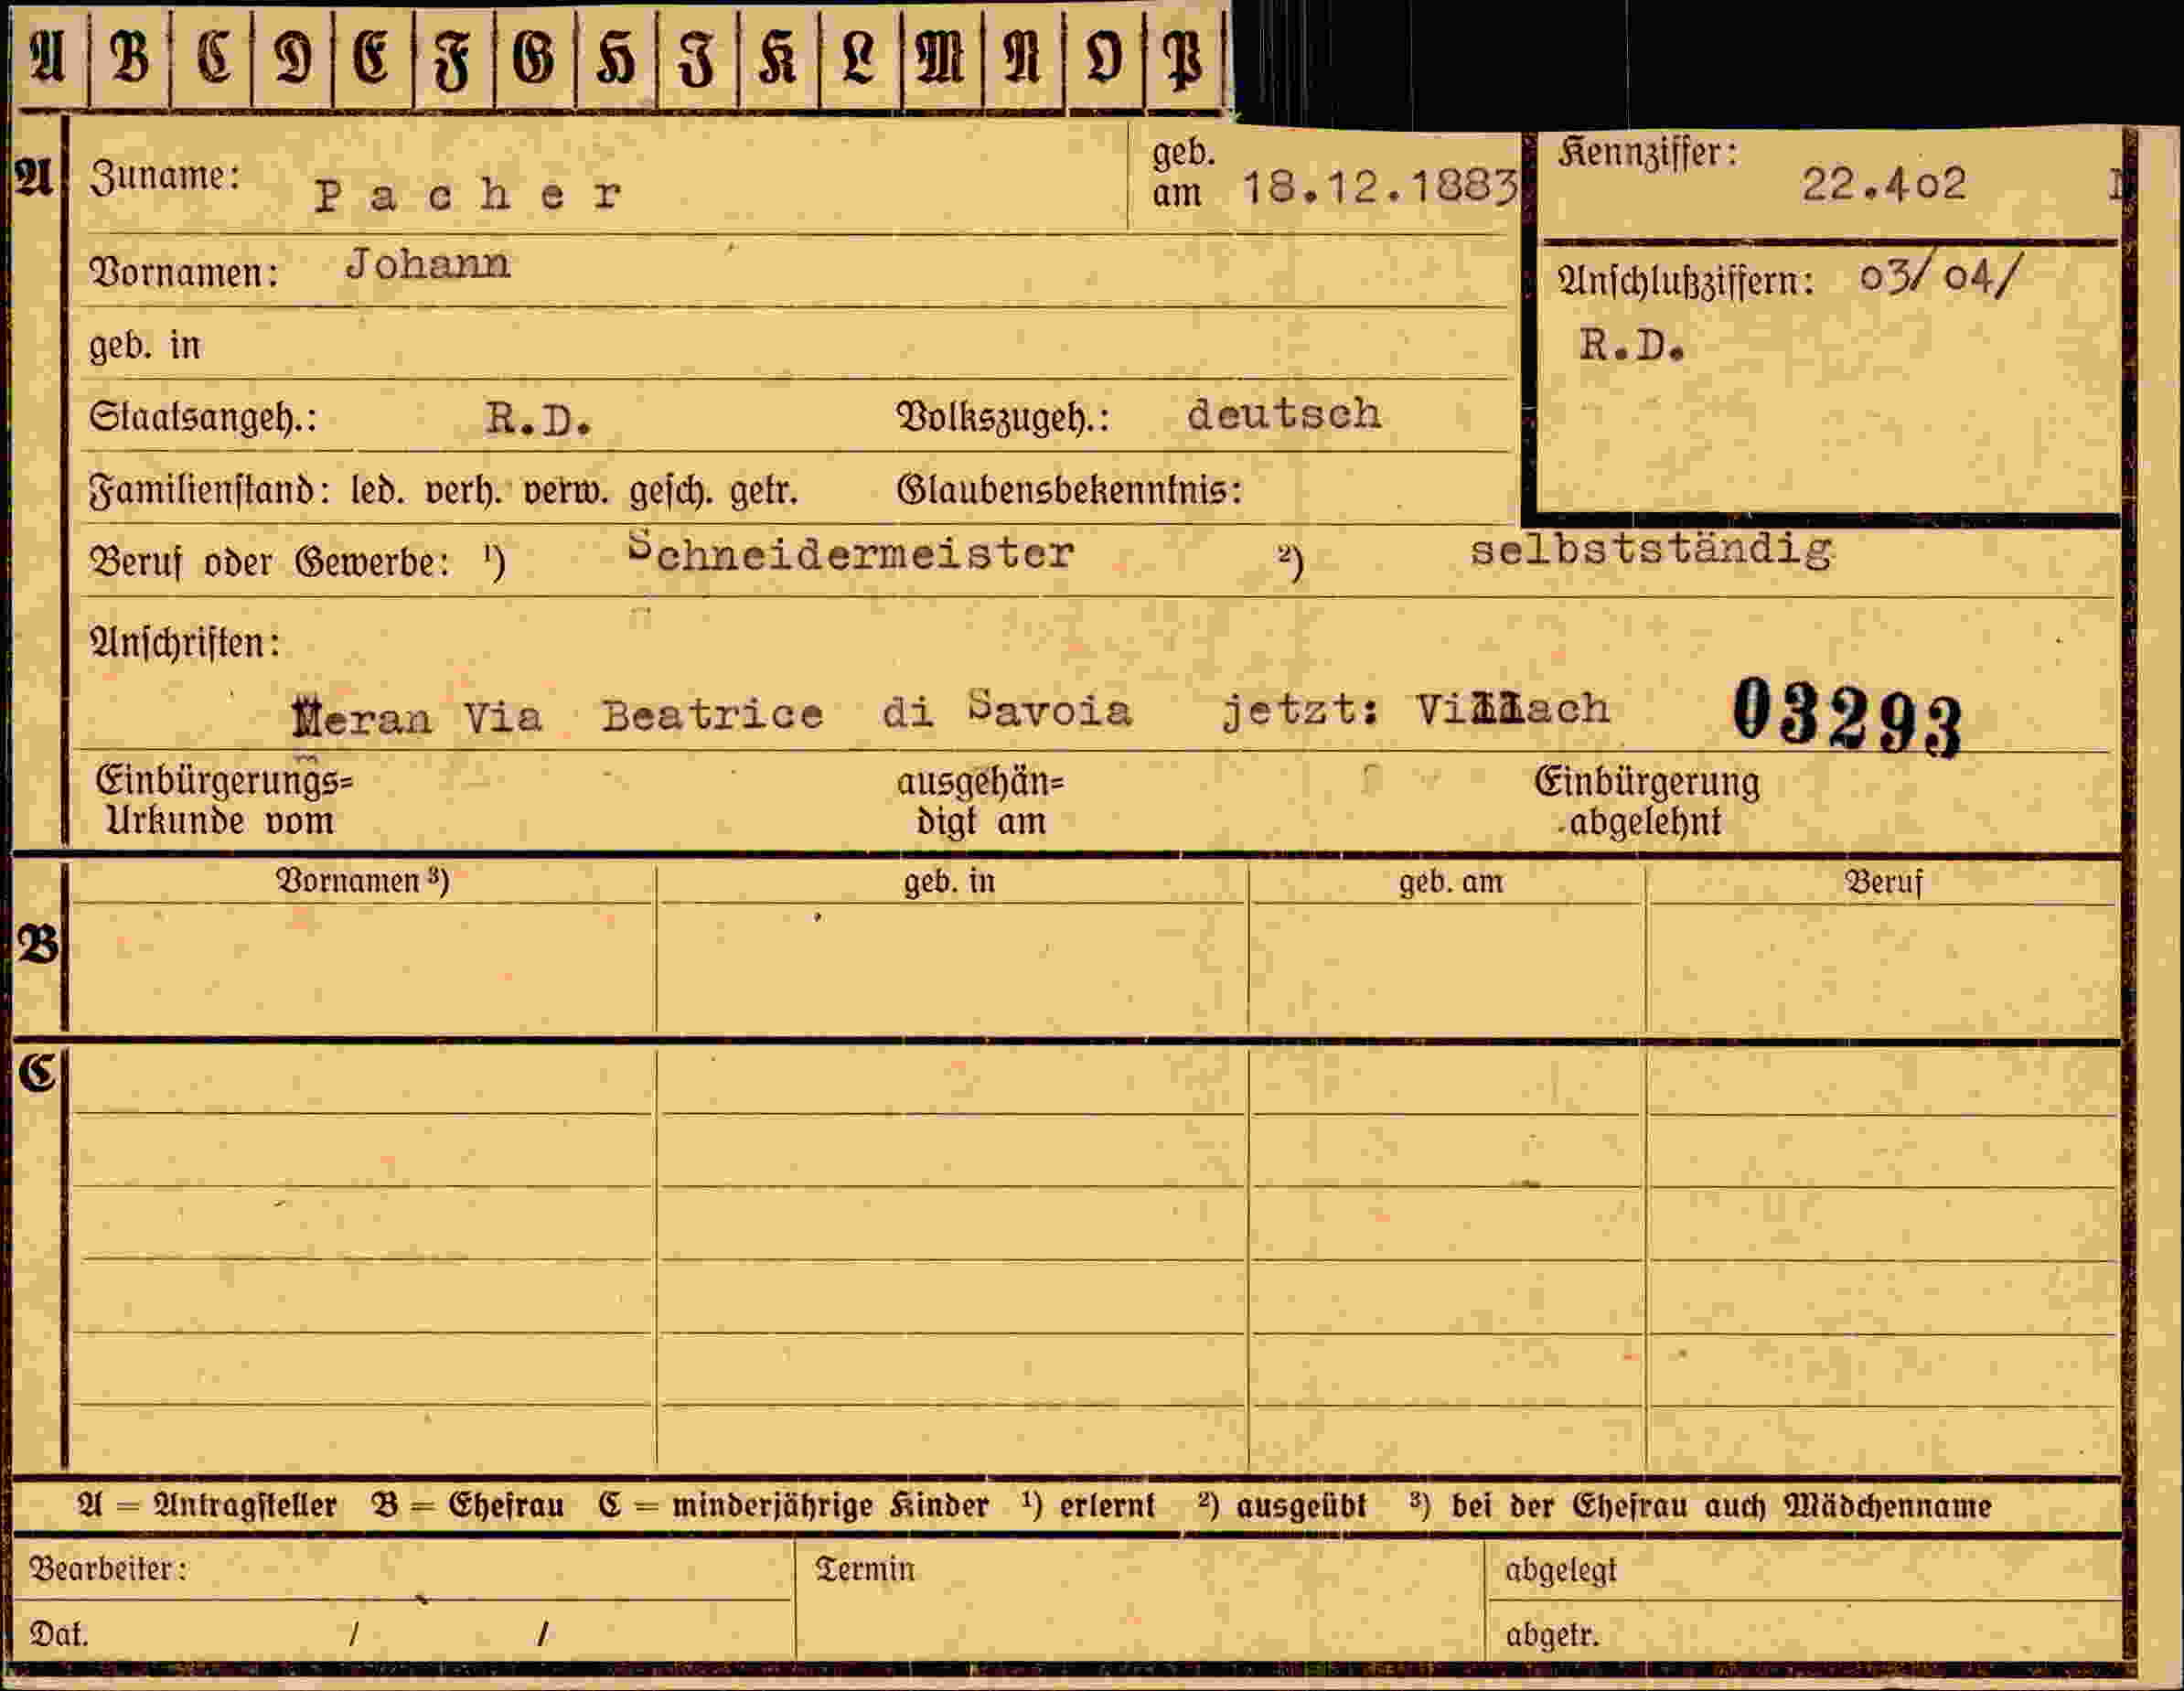 A B C D E F G H J K L M N O P
A Zuname: Pacher geb. am 18.12.1883 Kennziffer: 22.4o2
Vornamen: Johann Anschlußziffern: o3/ o4/
geb. in R.D.
Staatsangeh.: R.D. Volkszugeh.: deutsch
Familienstand: led. verh. verw. gesch. getr. Glaubensbekenntnis:
Beruf oder Gewerbe: ¹) Schneidermeister ²) selbstständig
Anschriften:
Meran Via Beatrice di Savoia jetzt: Villach 03293
Einbürgerungs= ausgehän= Einbürgerung
Urkunde vom digt am abgelehnt
Vornamen ³) geb. in geb. am Beruf
B
C
A = Antragsteller B = Ehefrau C = minderjährige Kinder ¹) erlernt ²) ausgeübt ³) bei der Ehefrau auch Mädchenname
Bearbeiter: Termin abgelegt
Dat. / / abgetr.